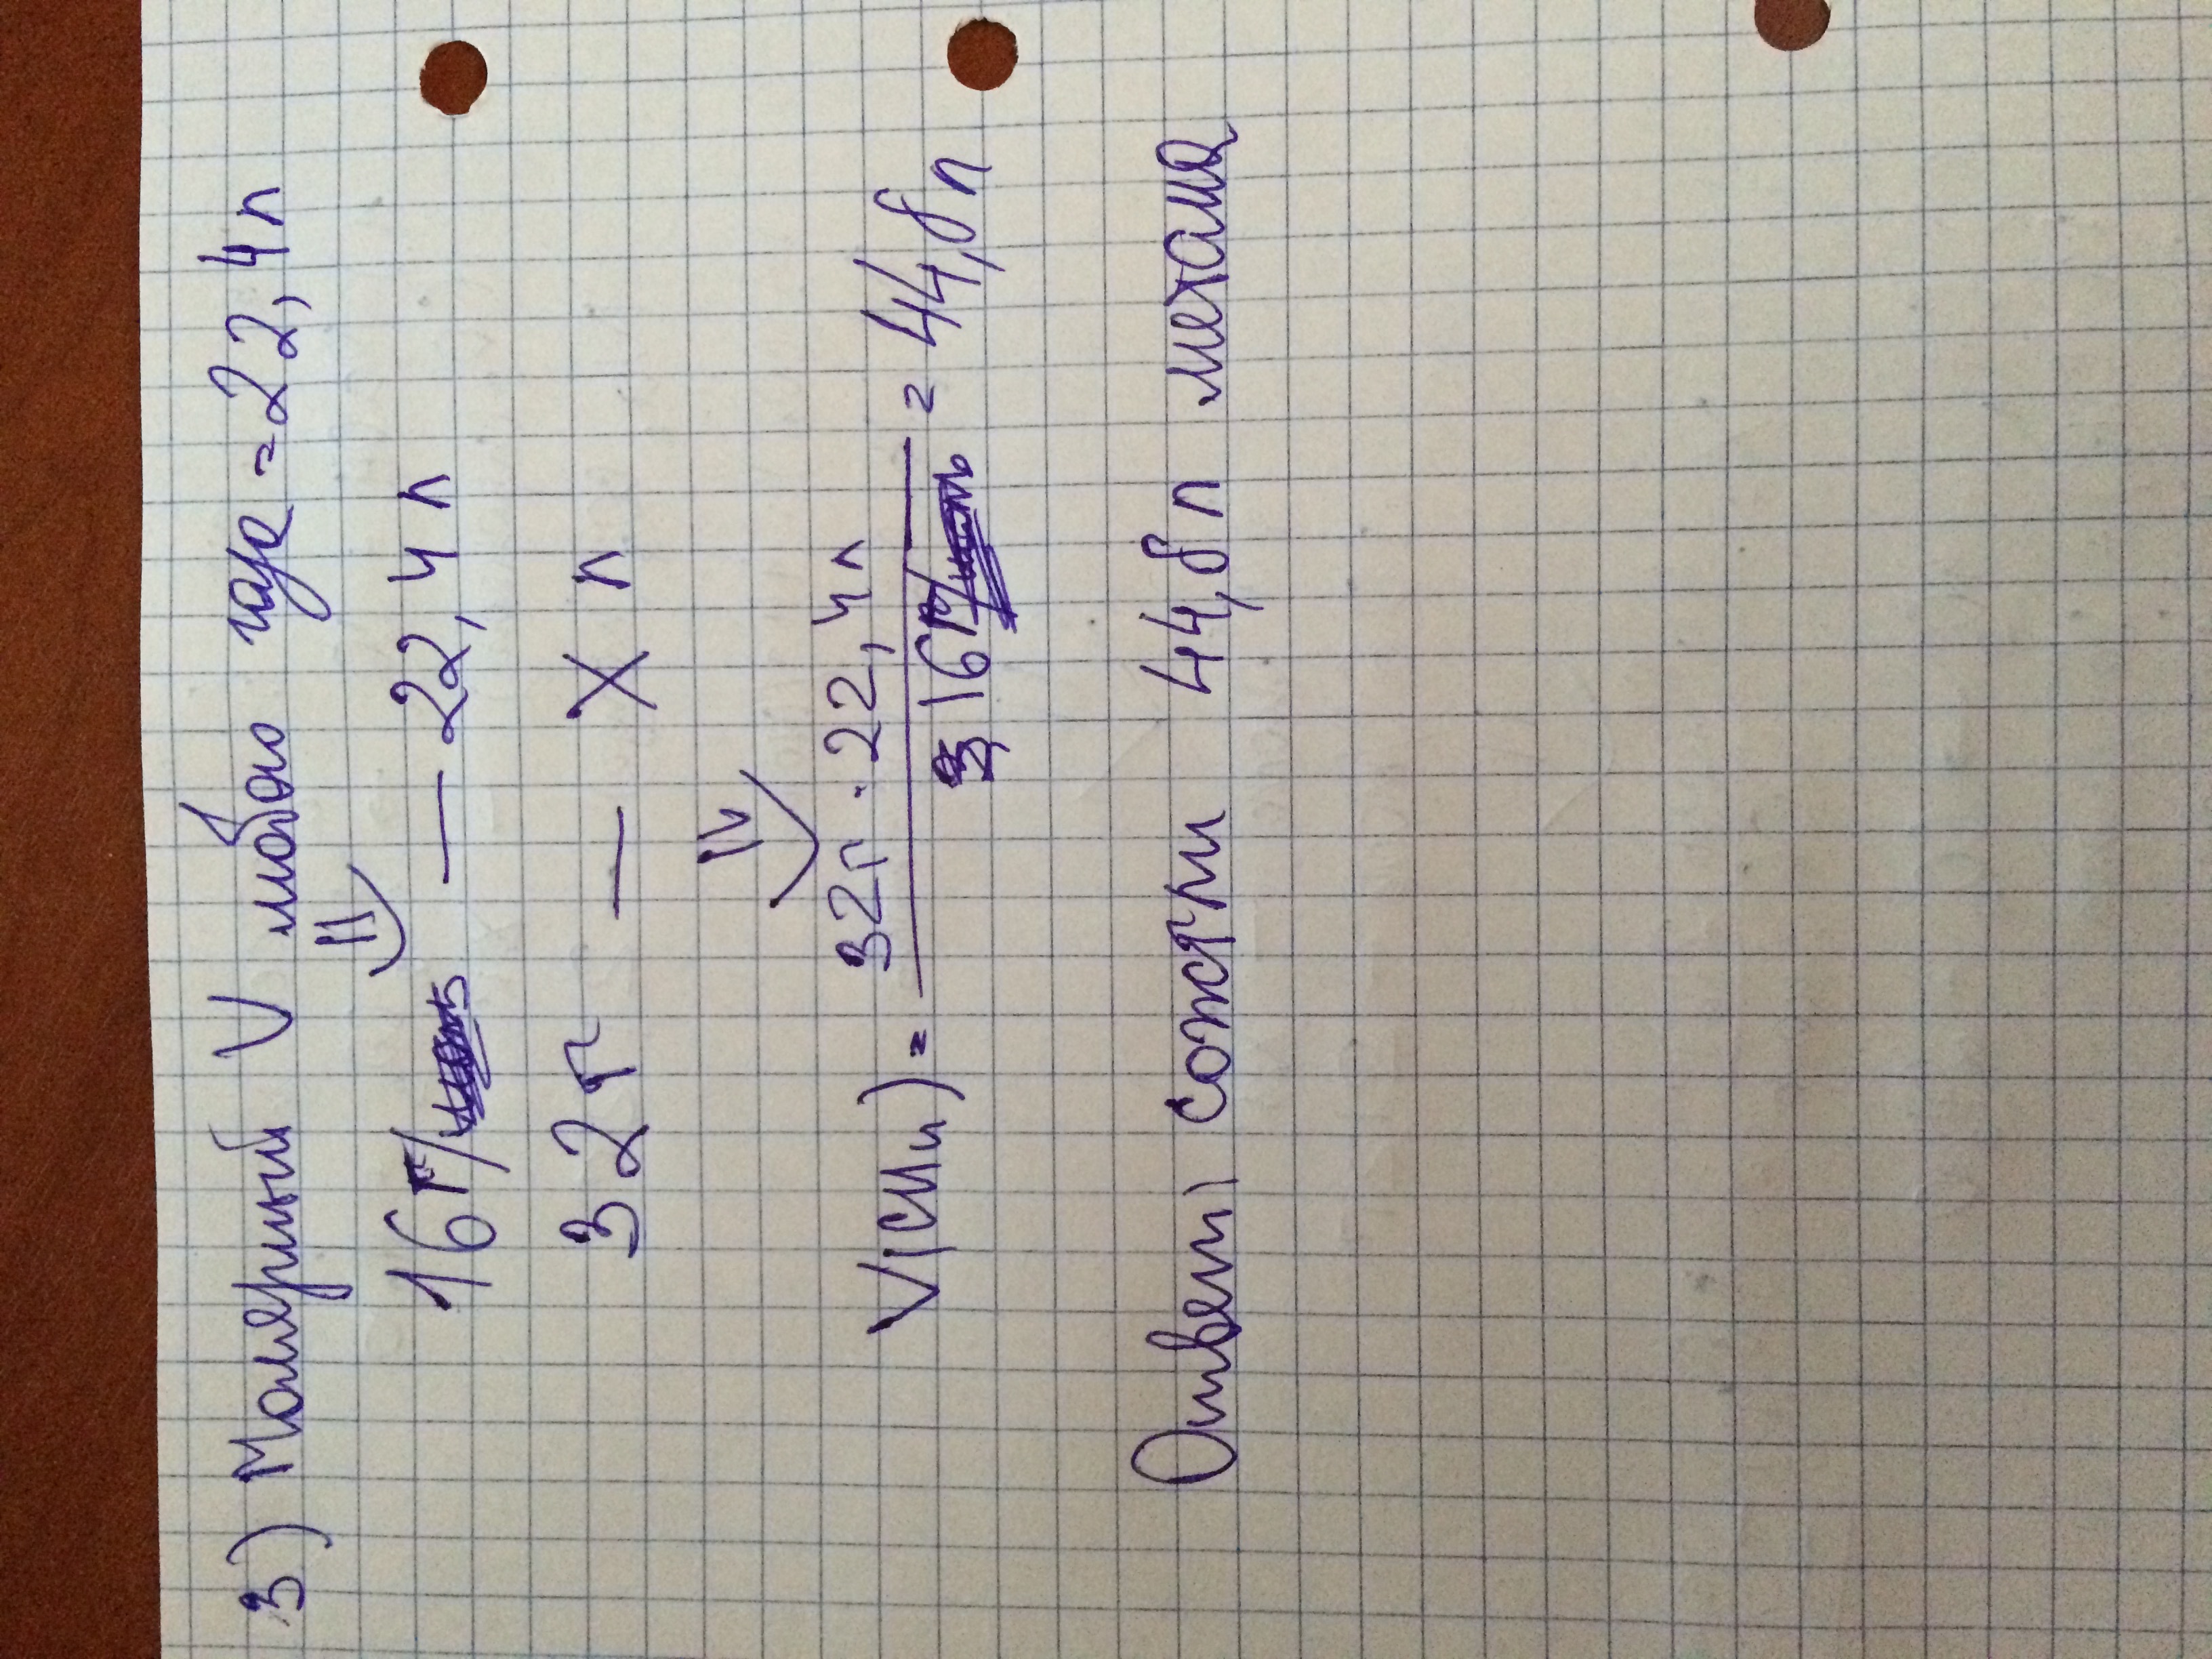 3) Молярный V любого газа = 22,4 л
⇓
16 г/ — 22,4 л
32 г — X л
⇓
V(CH₄) = 32г · 22,4 л / 16 г = 44,8 л
Ответ: сожгли 44,8 л метана